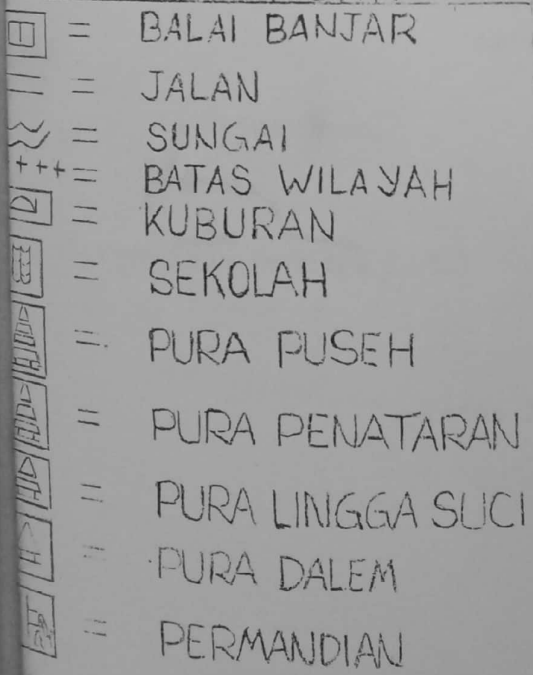 = BALAI BANJAR
= JALAN
= SUNGAI
+++ = BATAS WILAYAH
= KUBURAN
= SEKOLAH
= PURA PUSEH
= PURA PENATARAN
= PURA LINGGA SUCI
= PURA DALEM
= PERMANDIAN